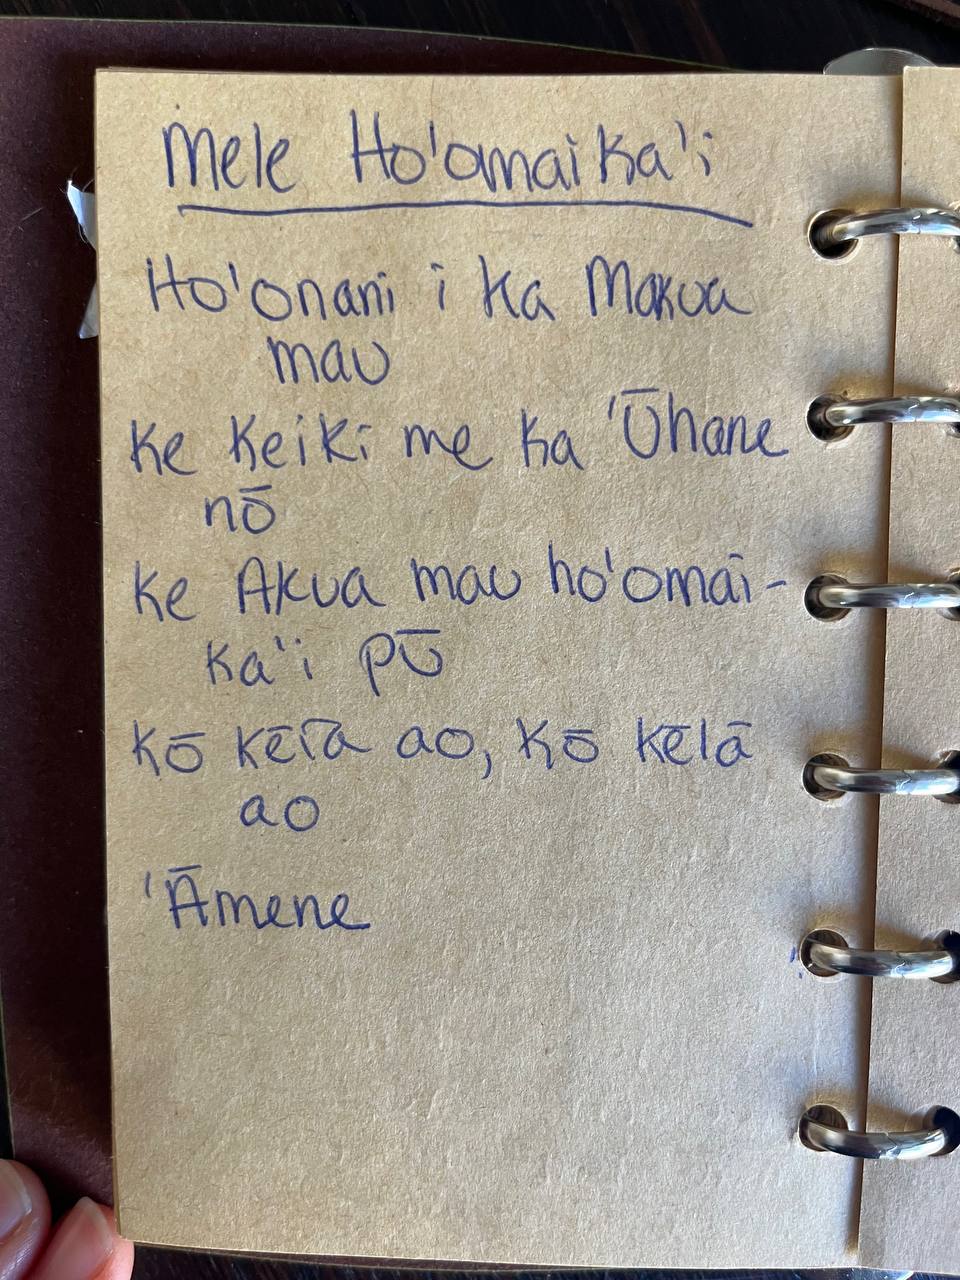 Mele Ho'omaika'i
Ho'onani i ka Makua
mau
ke keiki me ka 'Ūhane
nō
ke Akua mau ho'omai-
ka'i pū
kō kēia ao, kō kēlā
ao
'Āmene